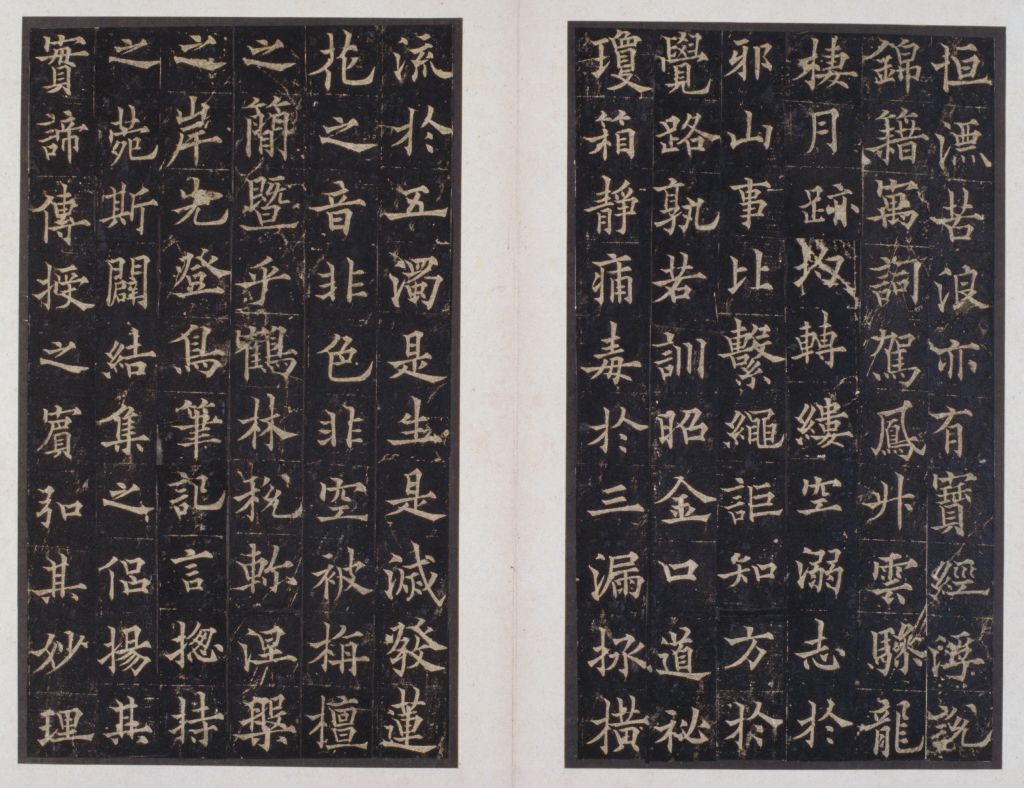 恒漂苦浪亦有寶經浮説
錦籍寓詞駕鳳升雲驂龍
棲月跡均轉縷空溺志於
邪山事比繫繩詎知方於
覺路孰若訓昭金口道祕
瓊箱靜痛毒於三漏拯橫
流於五濁是生是滅發蓮
花之音非色非空被栴檀
之簡暨乎鶴林税軫涅槃
之岸先登鳥筆記言揔持
之菀斯闢結集之侶揚其
實諦傳授之賓弘其妙理